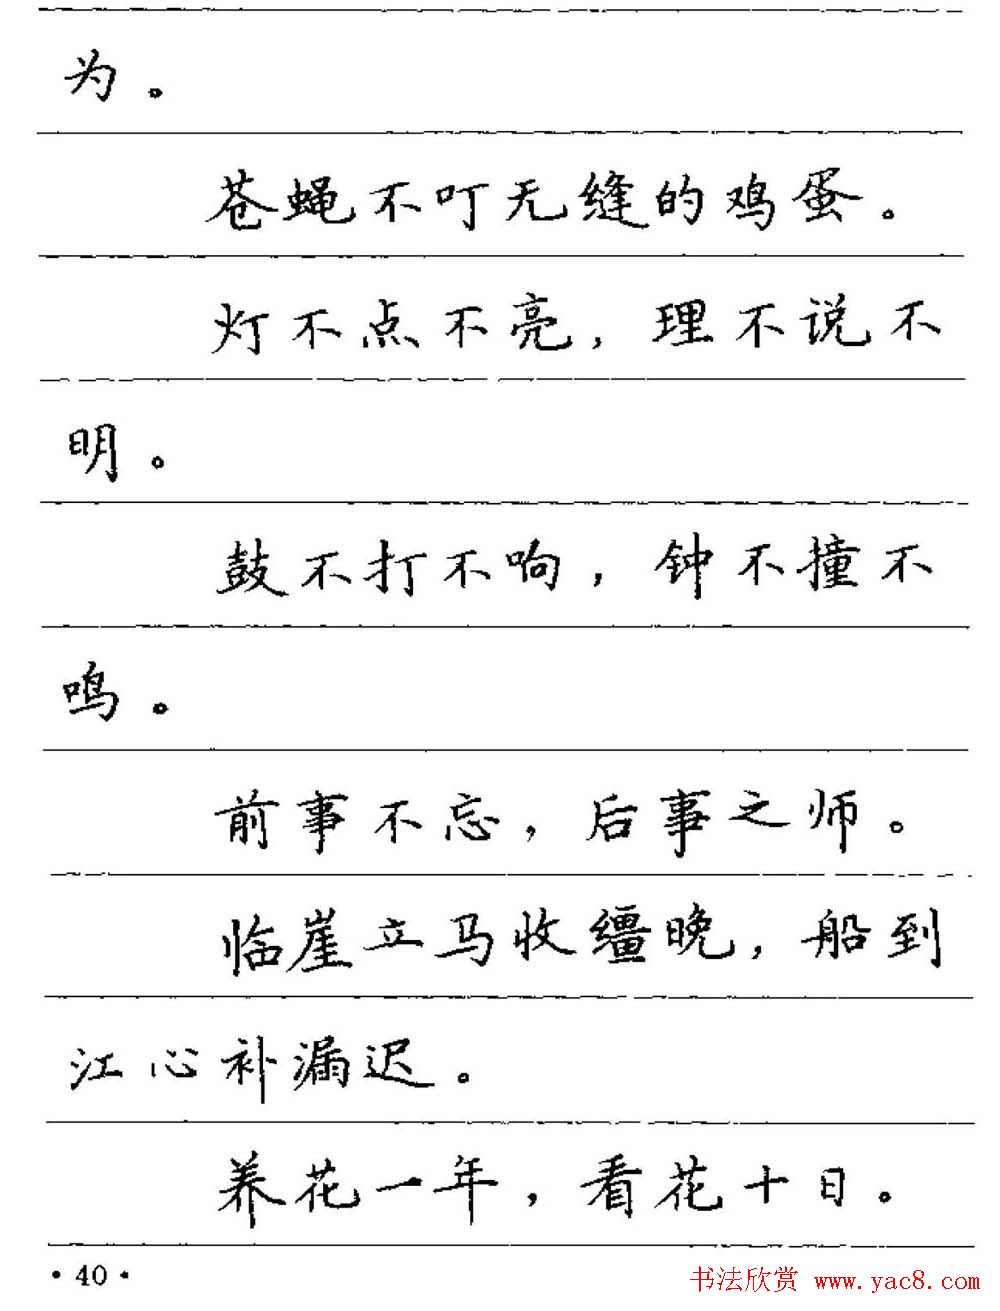 为。
苍蝇不叮无缝的鸡蛋。
灯不点不亮，理不说不
明。
鼓不打不响，钟不撞不
鸣。
前事不忘，后事之师。
临崖立马收缰晚，船到
江心补漏迟。
养花一年，看花十日。
·40·
书法欣赏 www.yac8.com